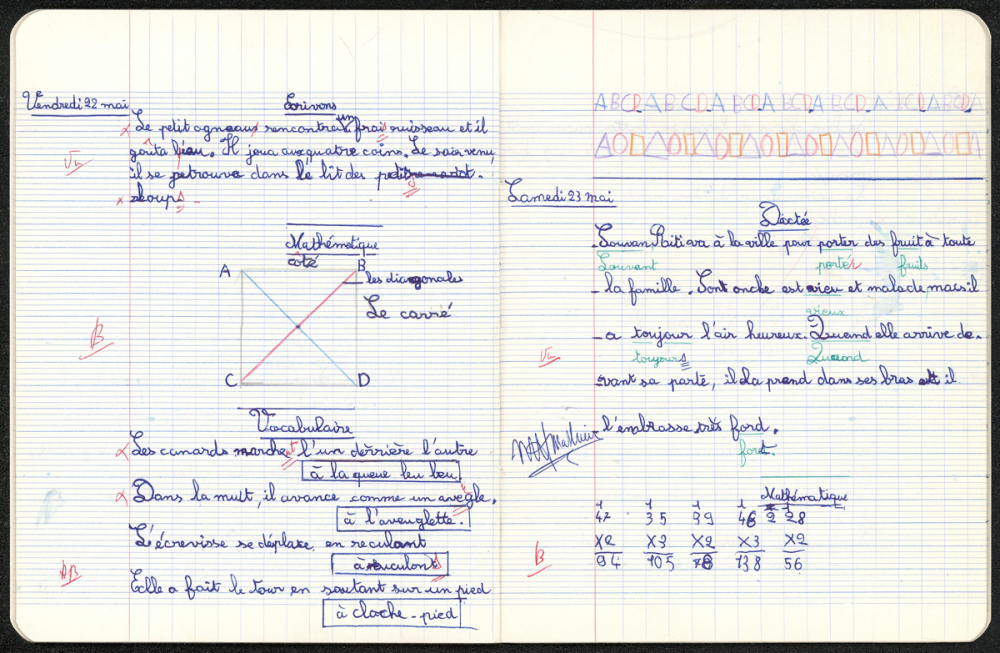 Vendredi 22 mai
Ecrivons
Le petit agneau rencontra un frais ruisseau et il
goûta l'eau. Il joua aux quatre coins. Le soir venu,
il se retrouva dans le lit des
loups.
Vu
Mathématique
côté
A
B
les diagonales
Le carré
C
D
B
Vocabulaire
Les canards marchent l'un dèrrière l'autre
à la queue leu leu
Dans la nuit, il avance comme un avegle.
à l'aveuglette.
L'écrevisse se déplace en reculant
à reculons
Elle a fait le tour en sautant sur un pied
à cloche-pied
AB
ABCD.ABCD.ABCD.ABCD.ABCD.ABCD.ABCD.A
Samedi 23 mai
Dictée
Souvan Piti va à la ville pour porter des fruit à toute
Souvent porter fruits
la famille. Sont oncle est vieu et malade mais il
vieux
a toujour l'air heureux. Quand elle arrive de-
toujours Quand
vant sa porte, il la prend dans ses bras et il
l'embrasse très ford.
fort.
Vu
Mathématique
1 1 1 1 1
47 35 39 46 28
X2 X3 X2 X3 X2
94 105 78 138 56
B